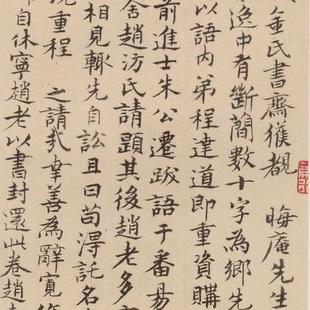 金氏書齋獲觀 晦庵先生
逸中有斷簡數十字為鄉先
以語内弟程達道即重資購
前進士朱公遷跋語于番昜
舍趙汸氏請題其後趙老多
相見輙先自訟且曰苟淂託名
説重程 之請哉幸善為辭寛
自休寧趙老以書封還此卷趙